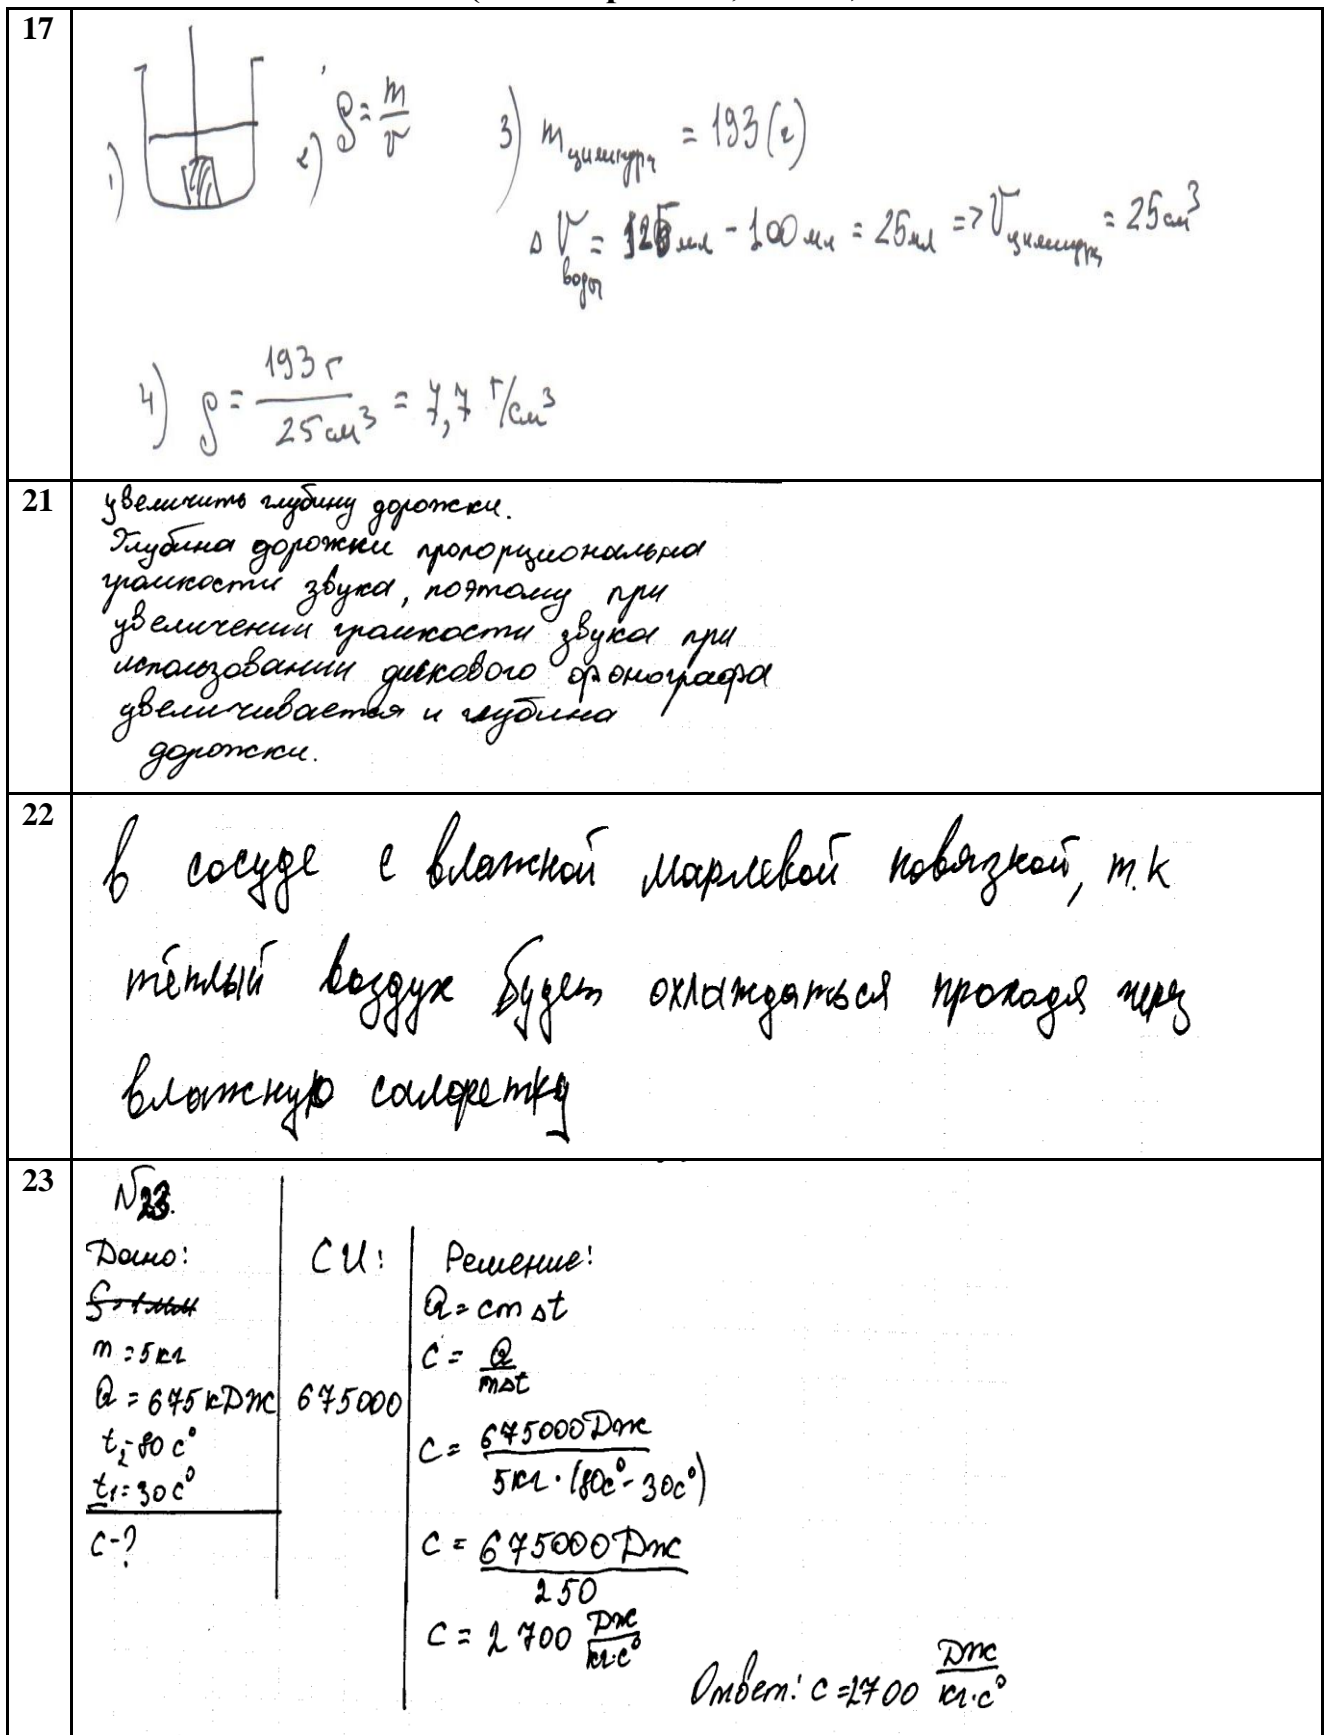 17
1)
2) ρ = m/V
3) m цилиндра = 193 (г)
Δ V воды = 125 мл - 100 мл = 25 мл => V цилиндра = 25 см³
4) ρ = 193 г / 25 см³ = 7,7 г/см³
21
увеличить глубину дорожки.
Глубина дорожки пропорциональна
громкости звука, поэтому при
увеличении громкости звука при
использовании дискового фонографа
увеличивается и глубина
дорожки.
22
в сосуде с влажной марлевой повязкой, т.к
тёплый воздух будет охлаждаться проходя через
влажную салфетку
23
N23.
Дано:
m = 5 кг
Q = 675 кДж
t₂ = 80 c°
t₁ = 30 c°
c - ?
СИ:
675000
Решение:
Q = cmΔt
c = Q / mΔt
c = 675000 Дж / 5 кг · (80c° - 30c°)
c = 675000 Дж / 250
c = 2 700 Дж / кг·c°
Ответ: c = 2700 Дж / кг·c°